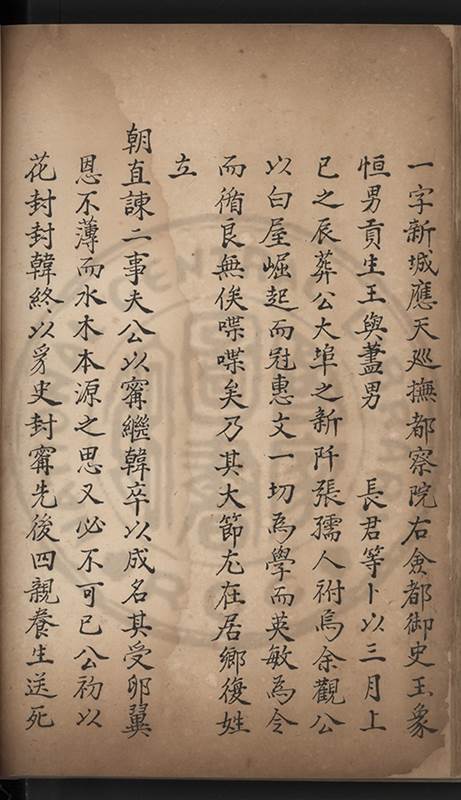 一字新城應天巡撫都察院右僉都御史王象
恒男貢生王與藎男　　長君等卜以三月上
已之辰葬公大埠之新阡張孺人祔焉余觀公
以白屋崛起而冠惠文一切為學而英敏為令
而循良無俟喋喋矣乃其大節尤在居鄉復姓
立
朝直諫二事夫公以甯繼韓卒以成名其受卵翼
恩不薄而水木本源之思又必不可已公初以
花封封韓終以豸史封甯先後四親養生送死